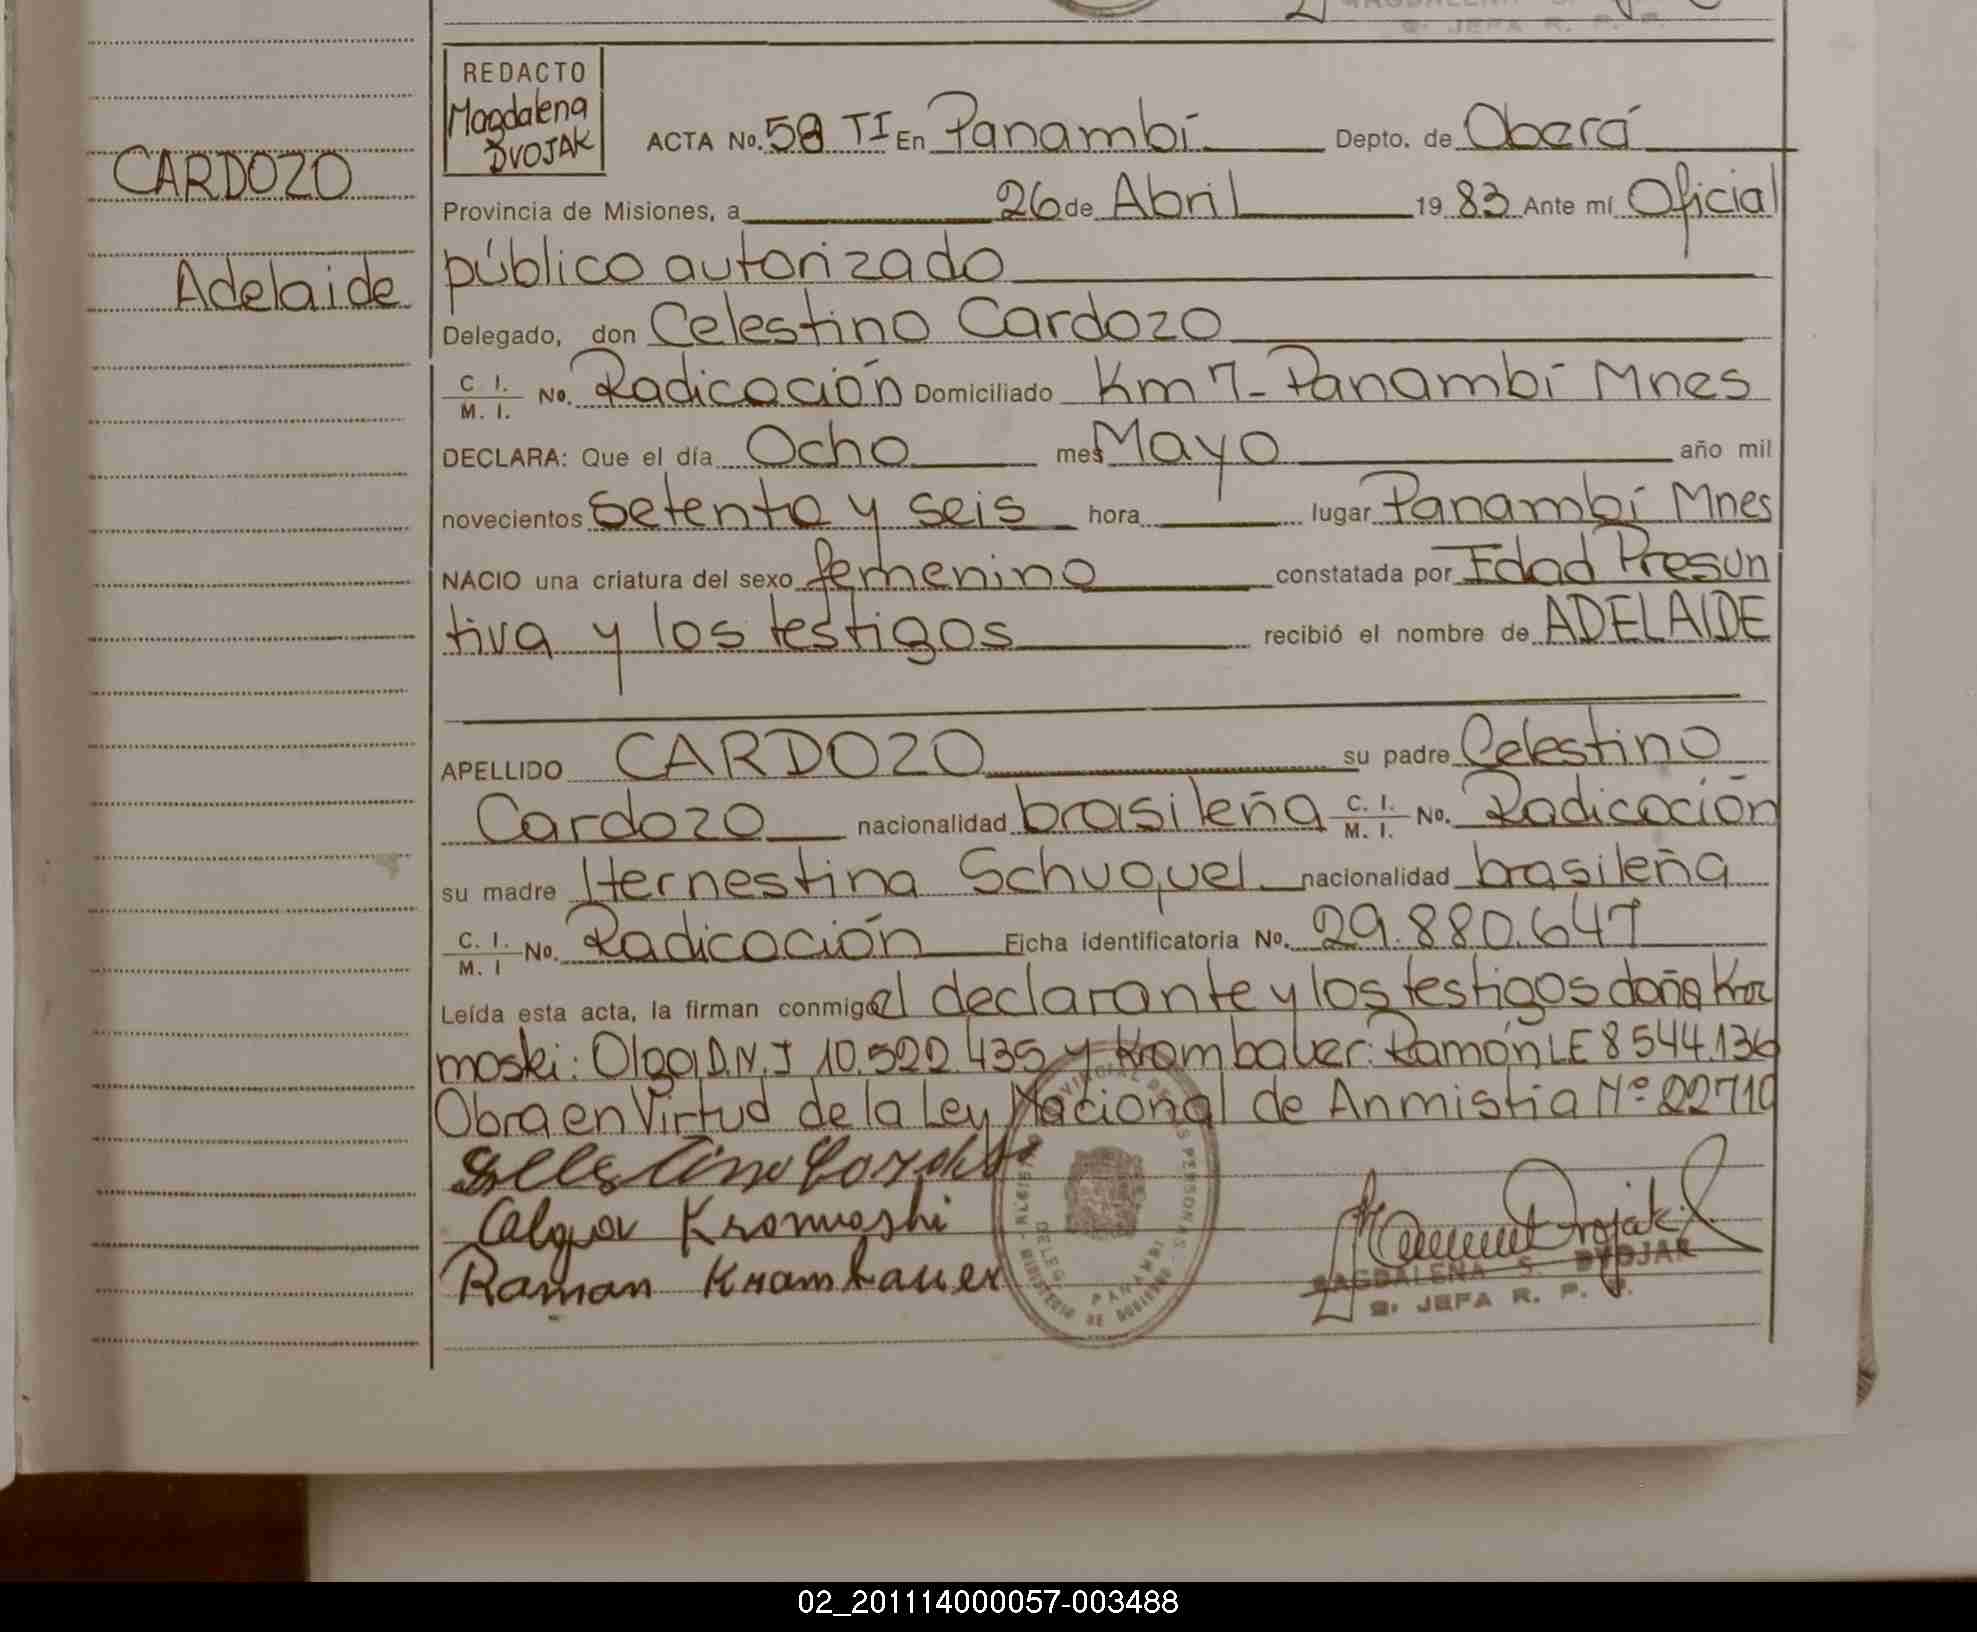 REDACTO
Magdalena
DVOJAK
CARDOZO
Adelaide
ACTA No. 58 TI En Panambí Depto. de Oberá
Provincia de Misiones, a 26 de Abril 19 83 Ante mí Oficial
público autorizado
Delegado, don Celestino Cardozo
C. I. / M. I. No. Radicación Domiciliado Km 7- Panambí Mnes
DECLARA: Que el día Ocho mes Mayo año mil
novecientos setenta y seis hora lugar Panambí Mnes
NACIO una criatura del sexo femenino constatada por Edad Presun
tiva y los testigos recibió el nombre de ADELAIDE
APELLIDO CARDOZO su padre Celestino
Cardozo nacionalidad brasileña C. I. / M. I. No. Radicación
su madre Hernestina Schuquel nacionalidad brasileña
C. I. / M. I No. Radicación Ficha identificatoria No. 29.880.647
Leída esta acta, la firman conmigo el declarante y los testigos doña Kro
moski: Olga D.N.I 10.522.435 y Krombauer: Ramón LE 8544.136
Obra en Virtud de la Ley Nacional de Anmistia Nº 22710
Celestino Cardozo
Olga Kromoski
Raman Krambauer
MAGDALENA S. DVOJAK
JEFA R. P. P.
MINISTERIO DE GOBIERNO
DELEG. PANAMBI
02_201114000057-003488